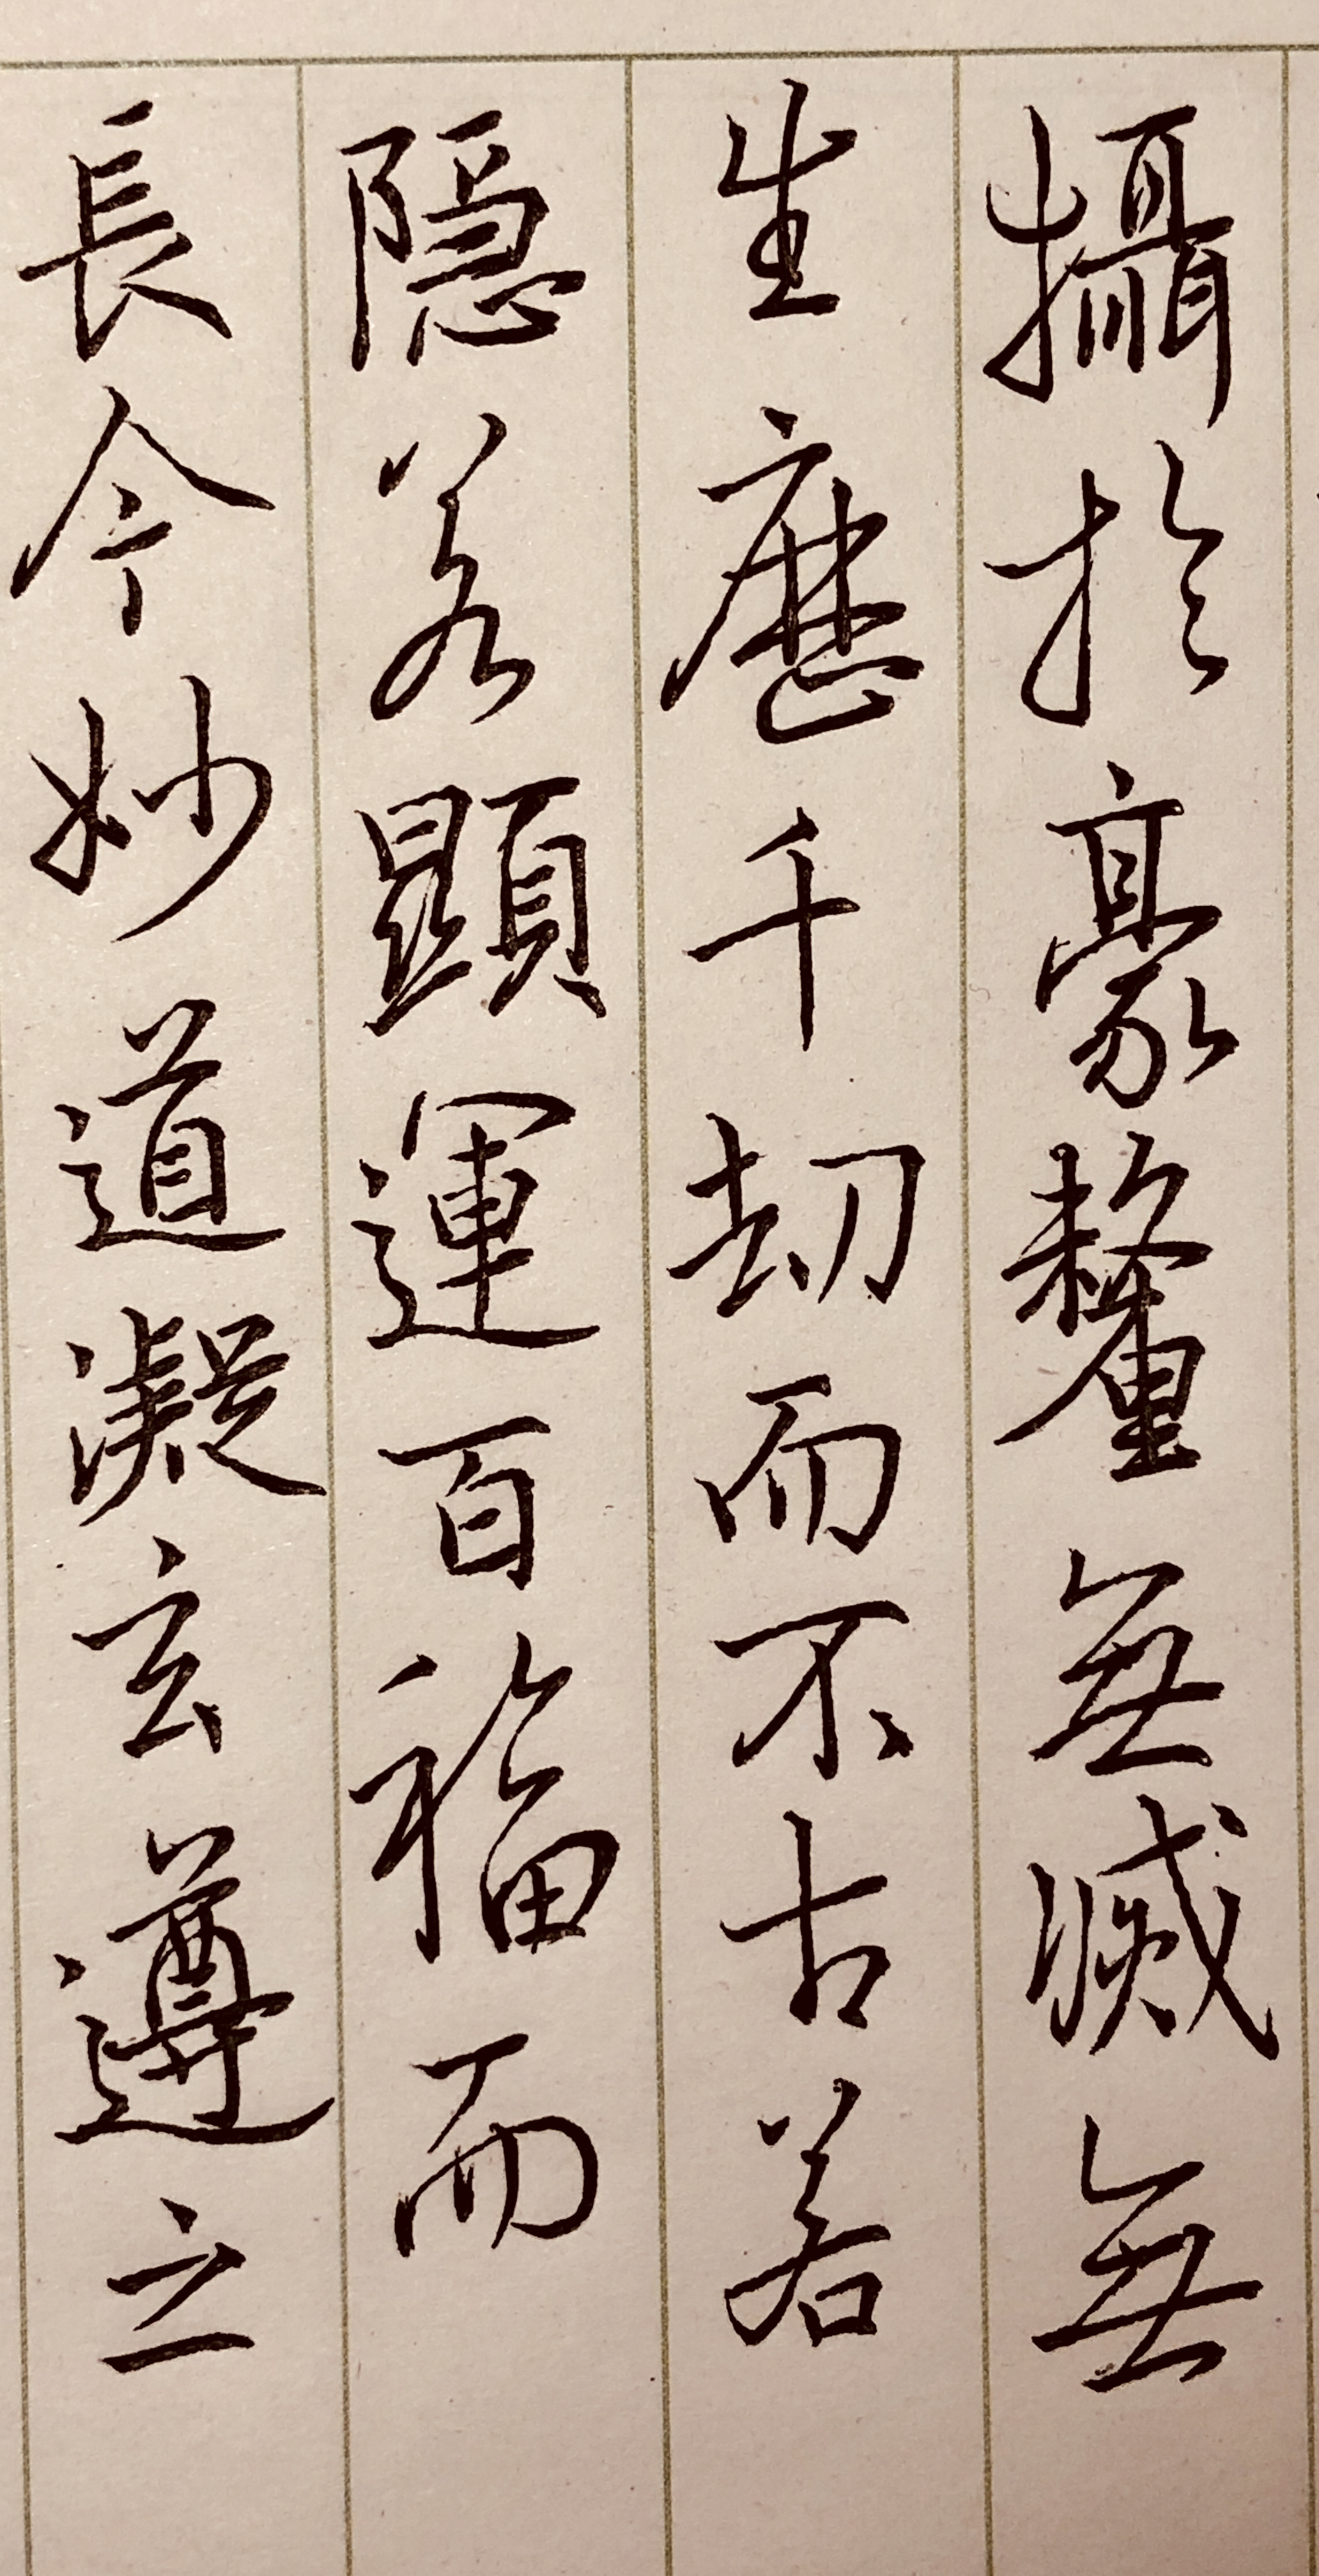 攝於豪釐無滅無
生歷千劫而不古若
隱若顯運百福而
長今妙道凝玄遵之